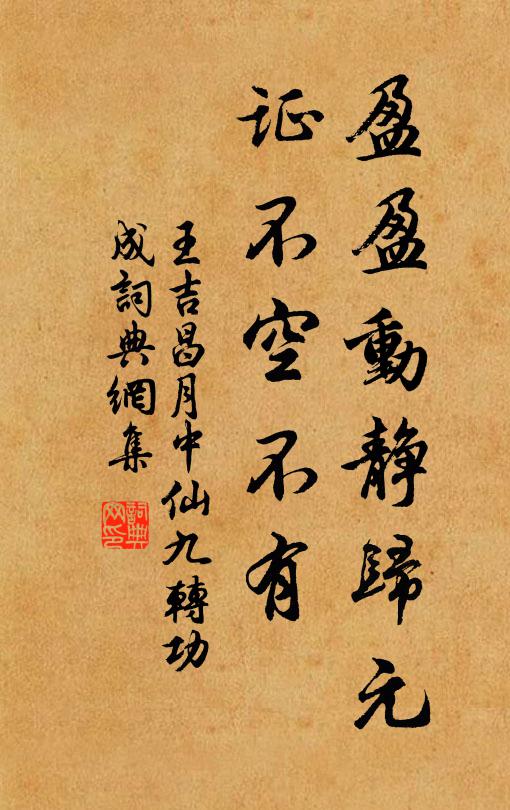 盈盈動静歸元
证不空不有
王吉昌月中仙九轉功
成詞典網集
詞典
网印